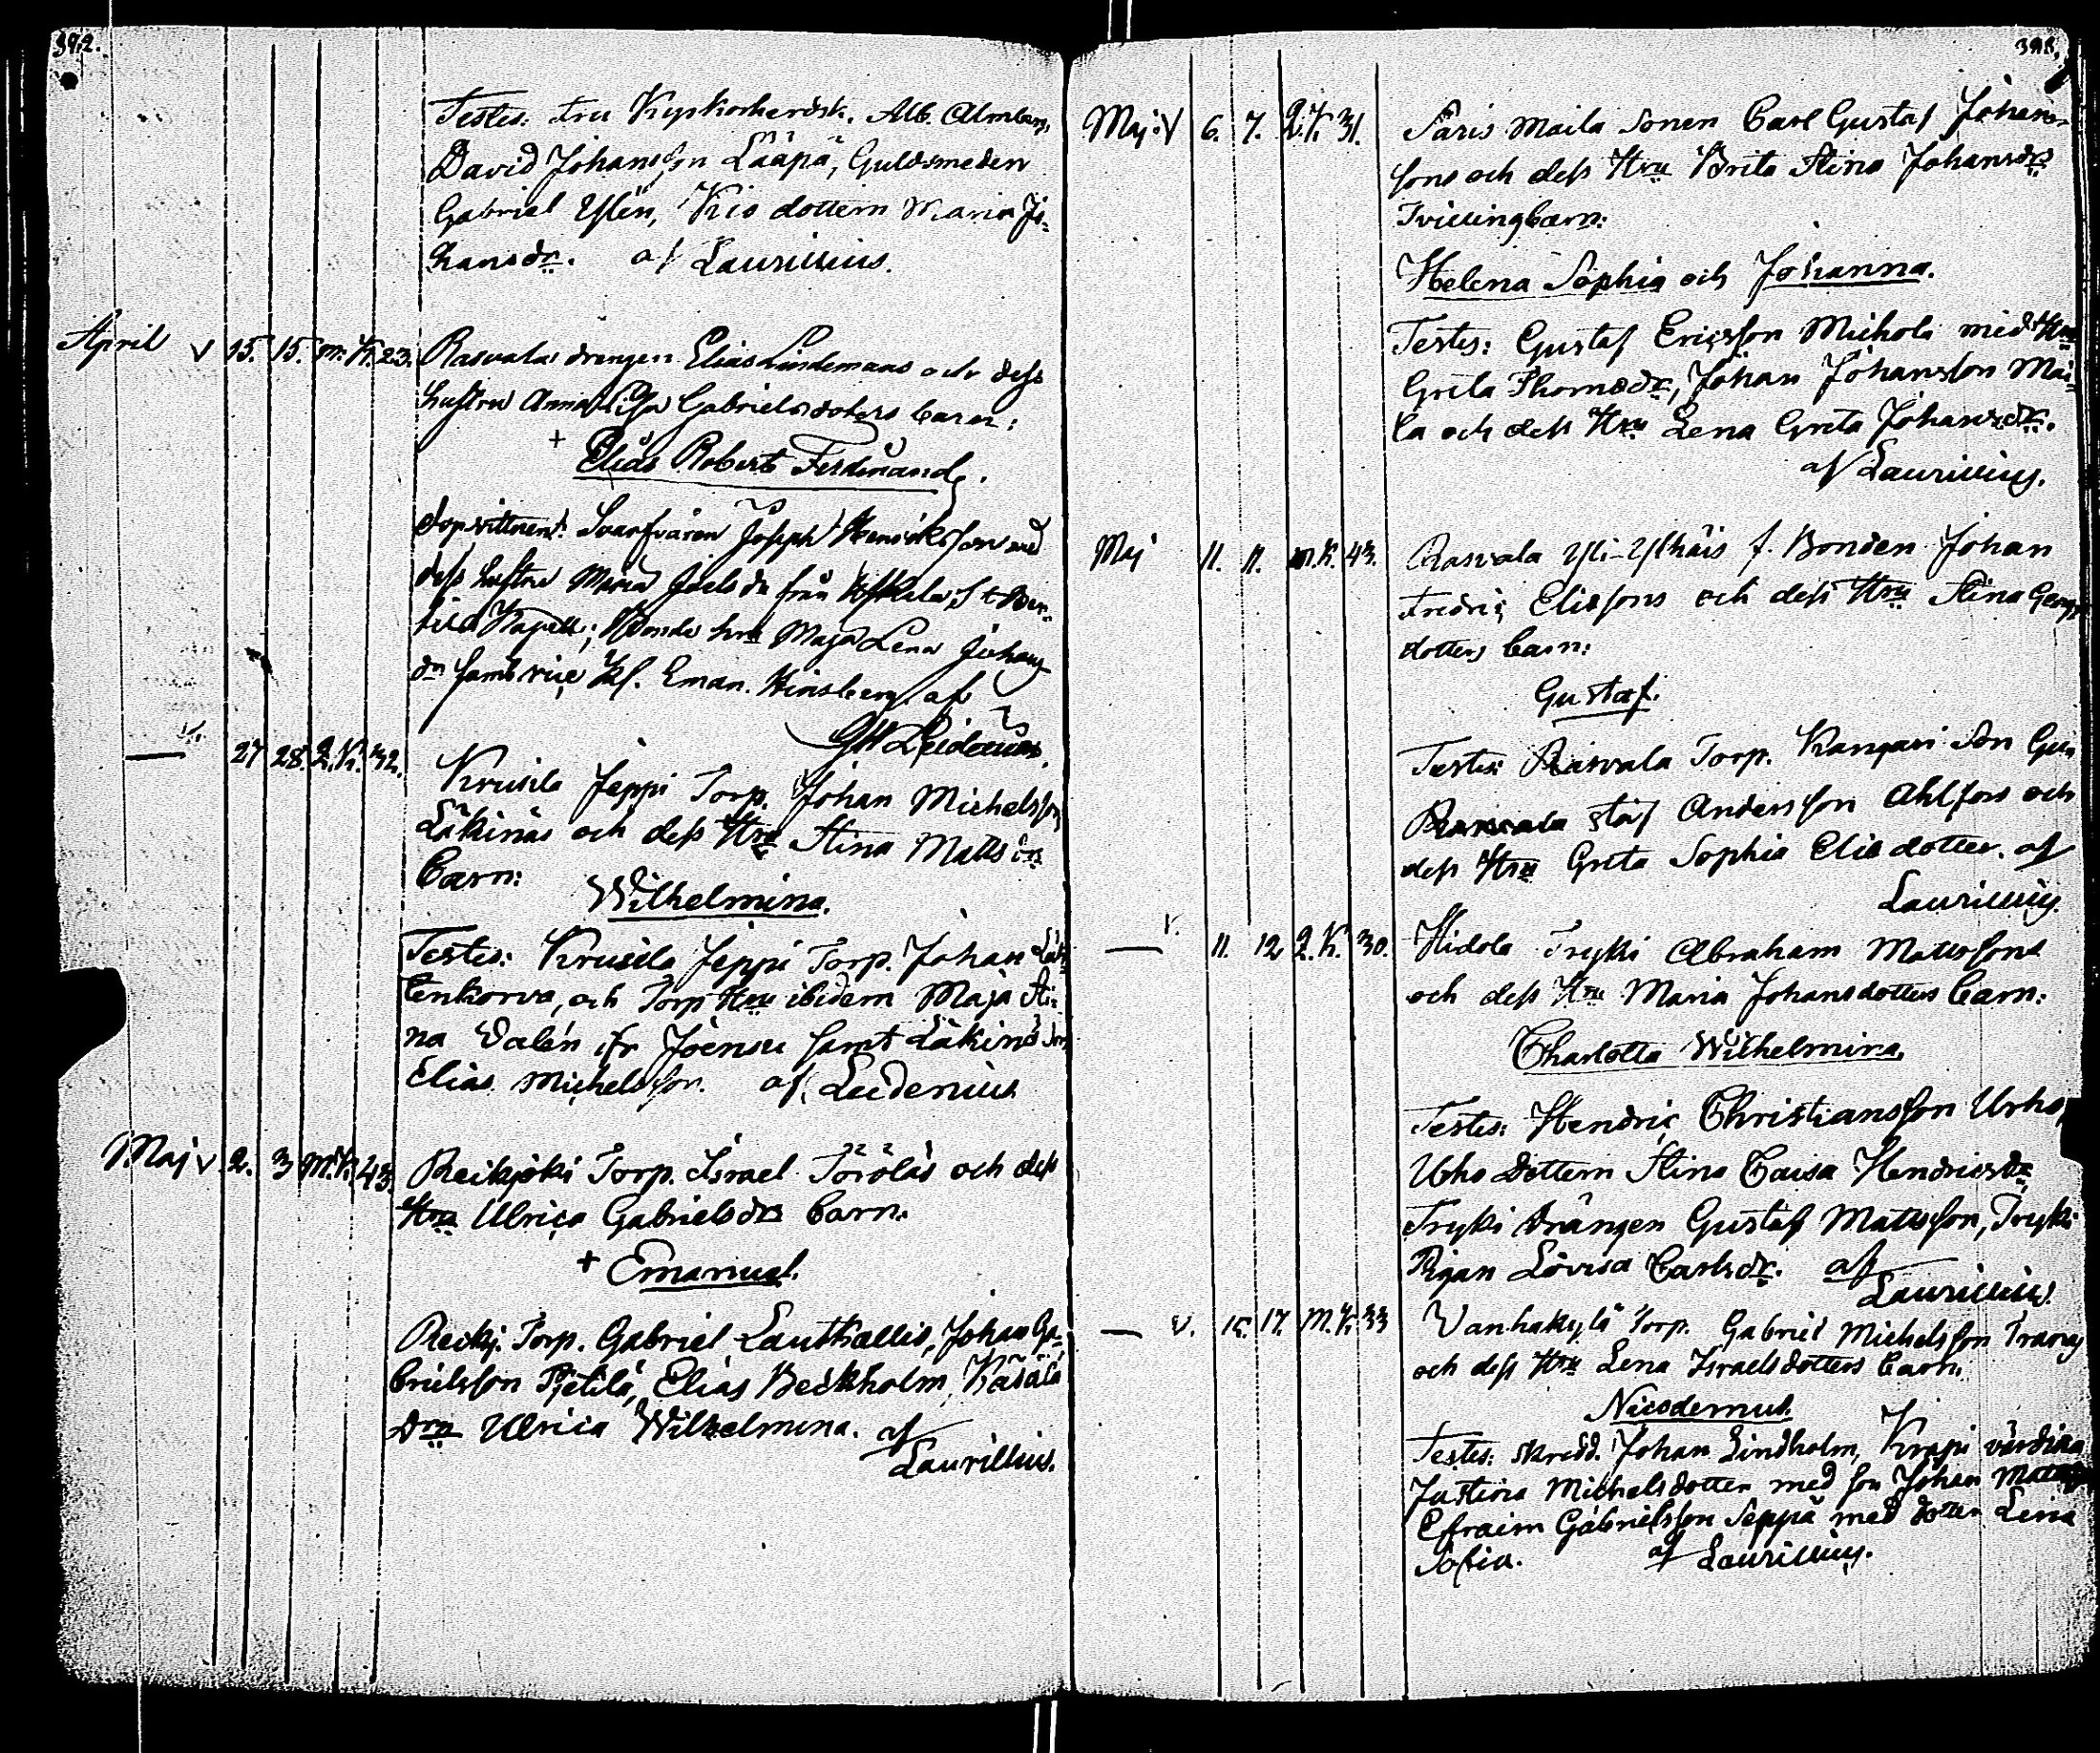 392.
Testes: Fru Kyrkoherdsk. Alb. Almberg,
David Johansson Lääpä, Guldsmeden
Gabriel Yslén, Kio dottern Maria Jo-
hansdr. af Laurillius.
April v 15. 15. m. K. 23. Rasvala drengen Elias Lindemans och dess
hustru Anna Lisa Gabrielsdoters barn:
+ Elias Robert Ferdinand.
dopvittnen: Svarfvaren Joseph Henriksson med
dess hustru Maria Joelsdr från
Kapell; Bonde hru Maja Lena Johans
dr samt vice Kl. Eman. Hinsberg af
GH Leidenius.
— v. 27 28. 2. K. 32. Krusila Jeppi Torp. Johan Michelsson
Läkinäs och dess Hru Stina Mattsdrs
Barn:
Wilhelmina.
Testes: Krusila Jeppi Torp. Johan
tenkorva, och Torp Hru ibidem Maja Sti-
na Dalén ifr Joensu samt Läkinäs Son
Elias Michelsson. af Leidenius
Maj v. 2. 3 M. K. 43. Reikjoki Torp. Israel Töröläs och dess
Hru Ulrica Gabrielsdrs Barn:
+ Emanuel.
Reikj. Torp. Gabriel Lauthallis, Johan Ga-
brielsson Pjetilä, Elias Beckholm, Käsälä
drn Ulrica Wilhelmina. af
Laurillius.
393.
Maj: V 6. 7. 2. K. 31. Säris Maila Sonen Carl Gustaf Johans-
sons och dess Hru Brita Stina Johansdrs
Tvillingbarn:
Helena Sophia och Johanna.
Testes: Gustaf Ericsson Michola med Hru
Greta Thomsdr, Johan Johansson Mai-
la och dess Hru Lena Greta Johansdr.
af Laurillius.
Maj 11. 11. m. K. 43. Rasvala Yli-Ylhäis f. Bonden Johan
Fredric Eliessons och dess Hru Stina Georgs
dotters barn:
Gustaf.
Testes: Rasvala Torp. Kangari Son Gu-
staf Andersson Ahlfors och
dess Hru Greta Sophia Elie dotter. af
Laurillius.
— v. 11. 12 2. K. 30. Hidola Tryki Abraham Mattssons
och dess Hru Maria Johansdotters barn:
Charlotta Wilhelmina.
Testes: Hendric Christiansson Urho,
Urho Dottern Stina Caisa Hendricsdr,
Tryki Drängen Gustaf Mattsson, Tryki
Pigan Lovisa Carlsdr. af
Laurillius.
— v. 15. 17. M. K. 33 Vanhakylä Torp. Gabriel Michelsson Trang
och dess Hru Lena Israelsdotters barn:
Nicodemus.
Testes: Skredd. Johan Lindholm, Krapi värdina
Justina Michelsdotter med son Johan
Efraim Gabrielsson Seppä med dotter Lena
Sofia. af Laurillius.